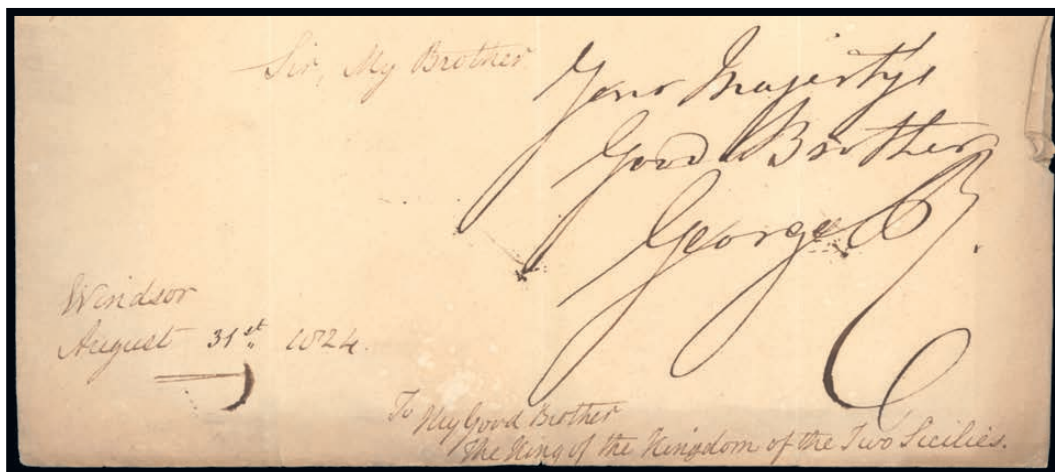 Sir, My Brother
Your Majesty's
Good Brother
George R.
Windsor
August 31st 1824.
To My Good Brother
The King of the Kingdom of the Two Sicilies.